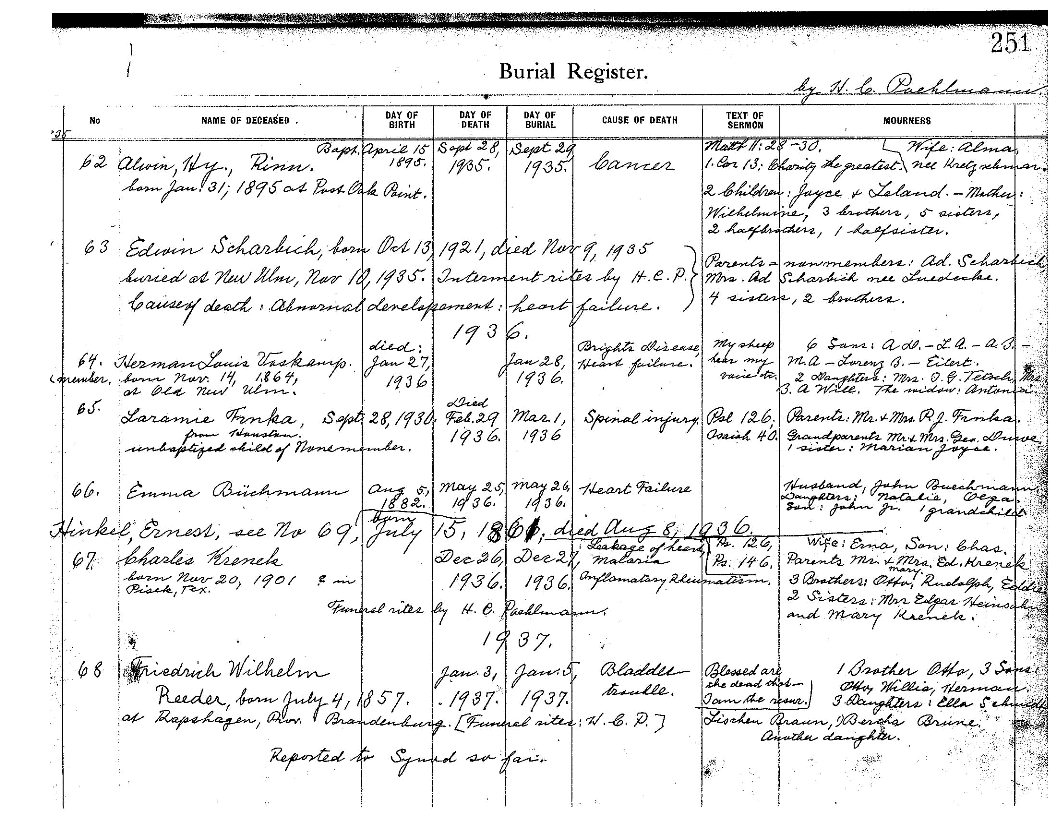 251
Burial Register.
by H. C. Poehlmann
No NAME OF DECEASED. DAY OF BIRTH DAY OF DEATH DAY OF BURIAL CAUSE OF DEATH TEXT OF SERMON MOURNERS
'35
62 Alwin, Hy., Rinn. Bapt. April 15 1895. Sept 28, 1935. Sept. 29 1935. Cancer Matt 11:28-30. Wife: Alma,
1. Cor 13; Charity the greatest. nee Kretzschmar.
born Jan. 31; 1895 at Post Oak Point. 2 Children: Joyce & Leland. - Mother:
Wilhelmine, 3 brothers, 5 sisters,
2 halfbrothers, 1 halfsister.
63 Edwin Scharbich, born Oct 13, 1921, died Nov 9, 1935
buried at New Ulm, Nov 10, 1935. Interment rites by H.C.P.
Cause of death: Abnormal developement: heart failure.
Parents = nonmembers: Ad. Scharbich
Mrs. Ad Scharbich nee Luedecke.
4 sisters, 2 brothers.
1936.
64. Herman Louis Voskamp. died: Jan 27, 1936 Jan 28, 1936. Brights Disease, Heart failure. My sheep hear my voice etc. 6 Sons: A.D. - L.A. - A.B. -
(member. born Nov. 14, 1864, M.A. - Lorenz B. - Eilert.
at Old New Ulm. 2 Daughters: Mrs. O.G. Tetsch, Mrs
B. A Will. The widow: Antonia
65. Laramie Frnka, Sept. 28, 1930. Died Feb. 29 1936. Mar 1, 1936 Spinal injury. Psl 126, Isaiah 40. Parents: Mr & Mrs R.J. Frnka.
from Houston. Grandparents Mr & Mrs. Geo. Duwe
unbaptized child of Nonemember. 1 sister: Marian Joyce.
66. Emma Büchmann Aug 5, 1882. May 25, 1936. May 26, 1936. Heart Failure Husband, John Buechmann
Daughters: Natalie, Olga.
Son: John Jr. 1 grandchild
born
Hinkel, Ernest, see No 69, July 15, 1861, died Aug 8, 1936.
67. Charles Krenek Dec 26, 1936. Dec 27, 1936. Leakage of heart, malaria Inflamatary Rheumatism. Ps. 126, Ps. 146. Wife: Erna, Son: Chas.
born Nov 20, 1901 & in Parents Mr. & Mrs. Ed. Krenek
Pisek, Tex. 3 Brothers: Otto, Rudolph, Eddie
2 Sisters: Mrs Edgar Heinsohn
Funeral rites by H. C. Poehlmann. and Mary Krenek.
1937.
68 Friedrich Wilhelm Jan 3, 1937. Jan. 5, 1937. Bladder trouble. Blessed are the dead that- I am the resur. 1 Brother Otto, 3 Sons:
Reeder, born July 4, 1857. Otto, Willie, Herman
3 Daughters: Ella Schmidt
at Rapshagen, Prov. Brandenburg. [Funeral rites: H.C.P.] Lischen Braun, Bertha Brune.
Another daughter.
Reported to Synod so far.